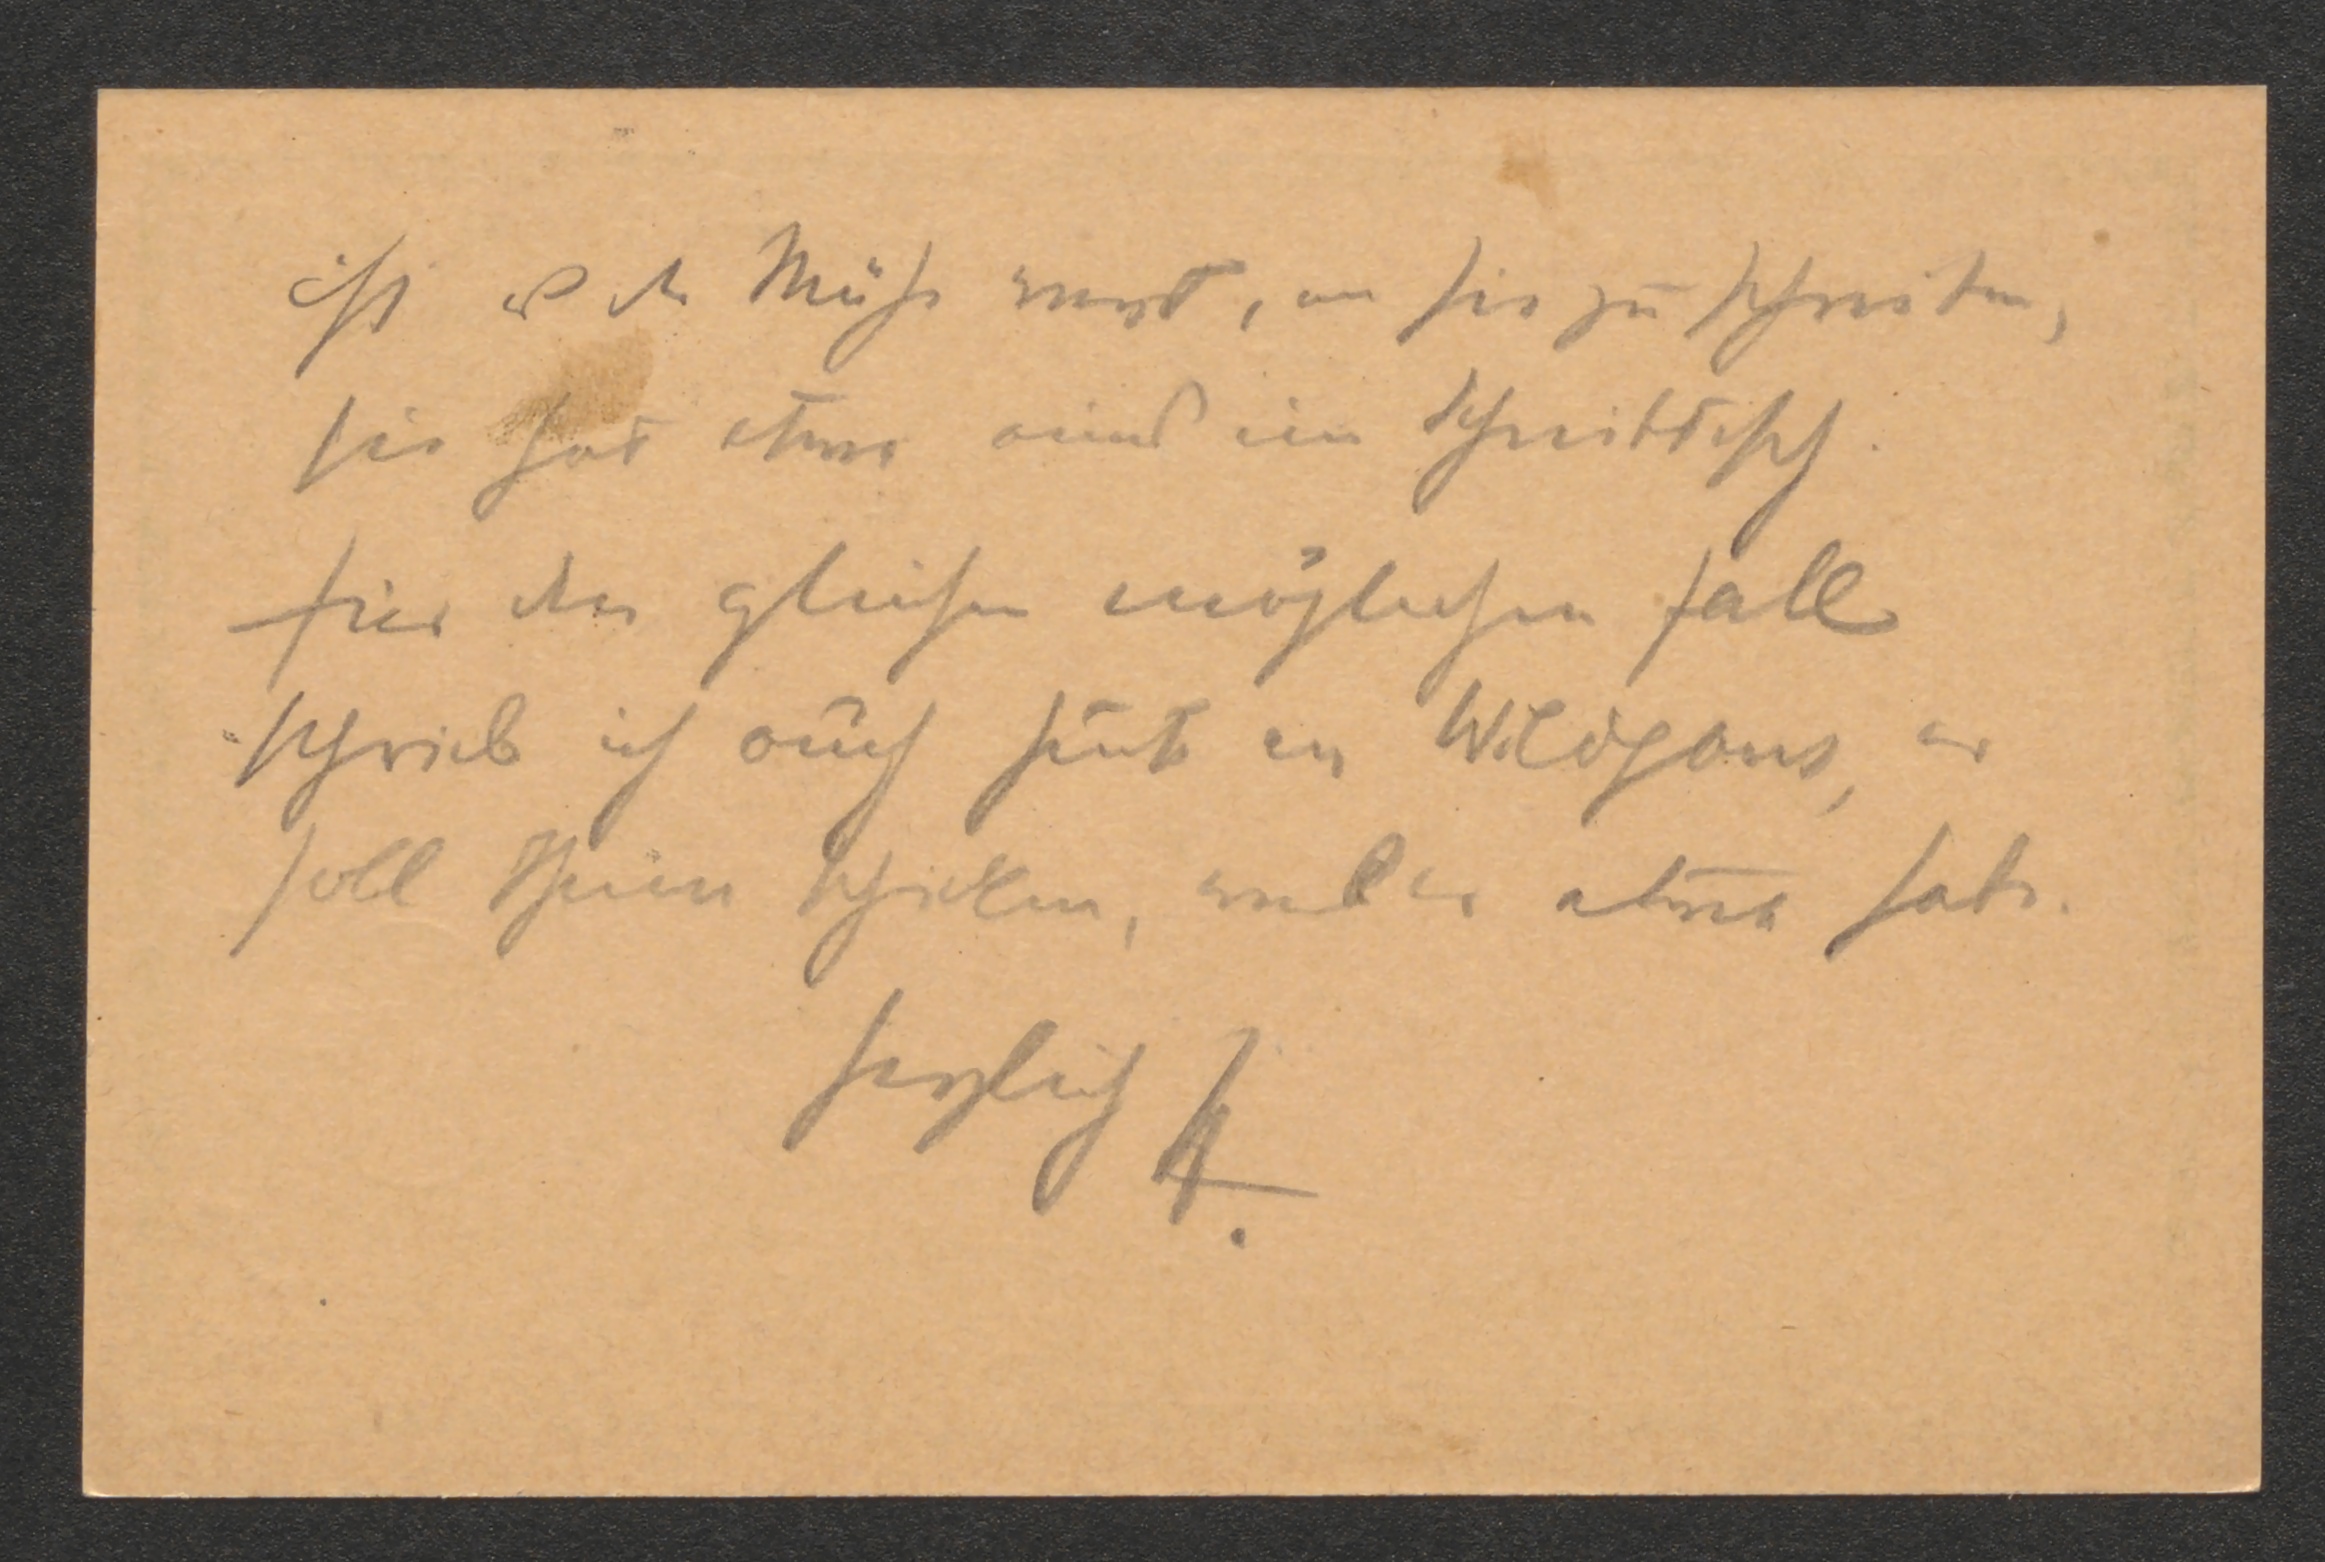 ist es der Mühe wert, an sie zu schreiben,
sie hat etwas im Schreibtisch.
Für den gleichen möglichen Fall
schrieb ich auch heute an Wildgans, er
soll Ihnen schicken, er etwas habe.
herzlich